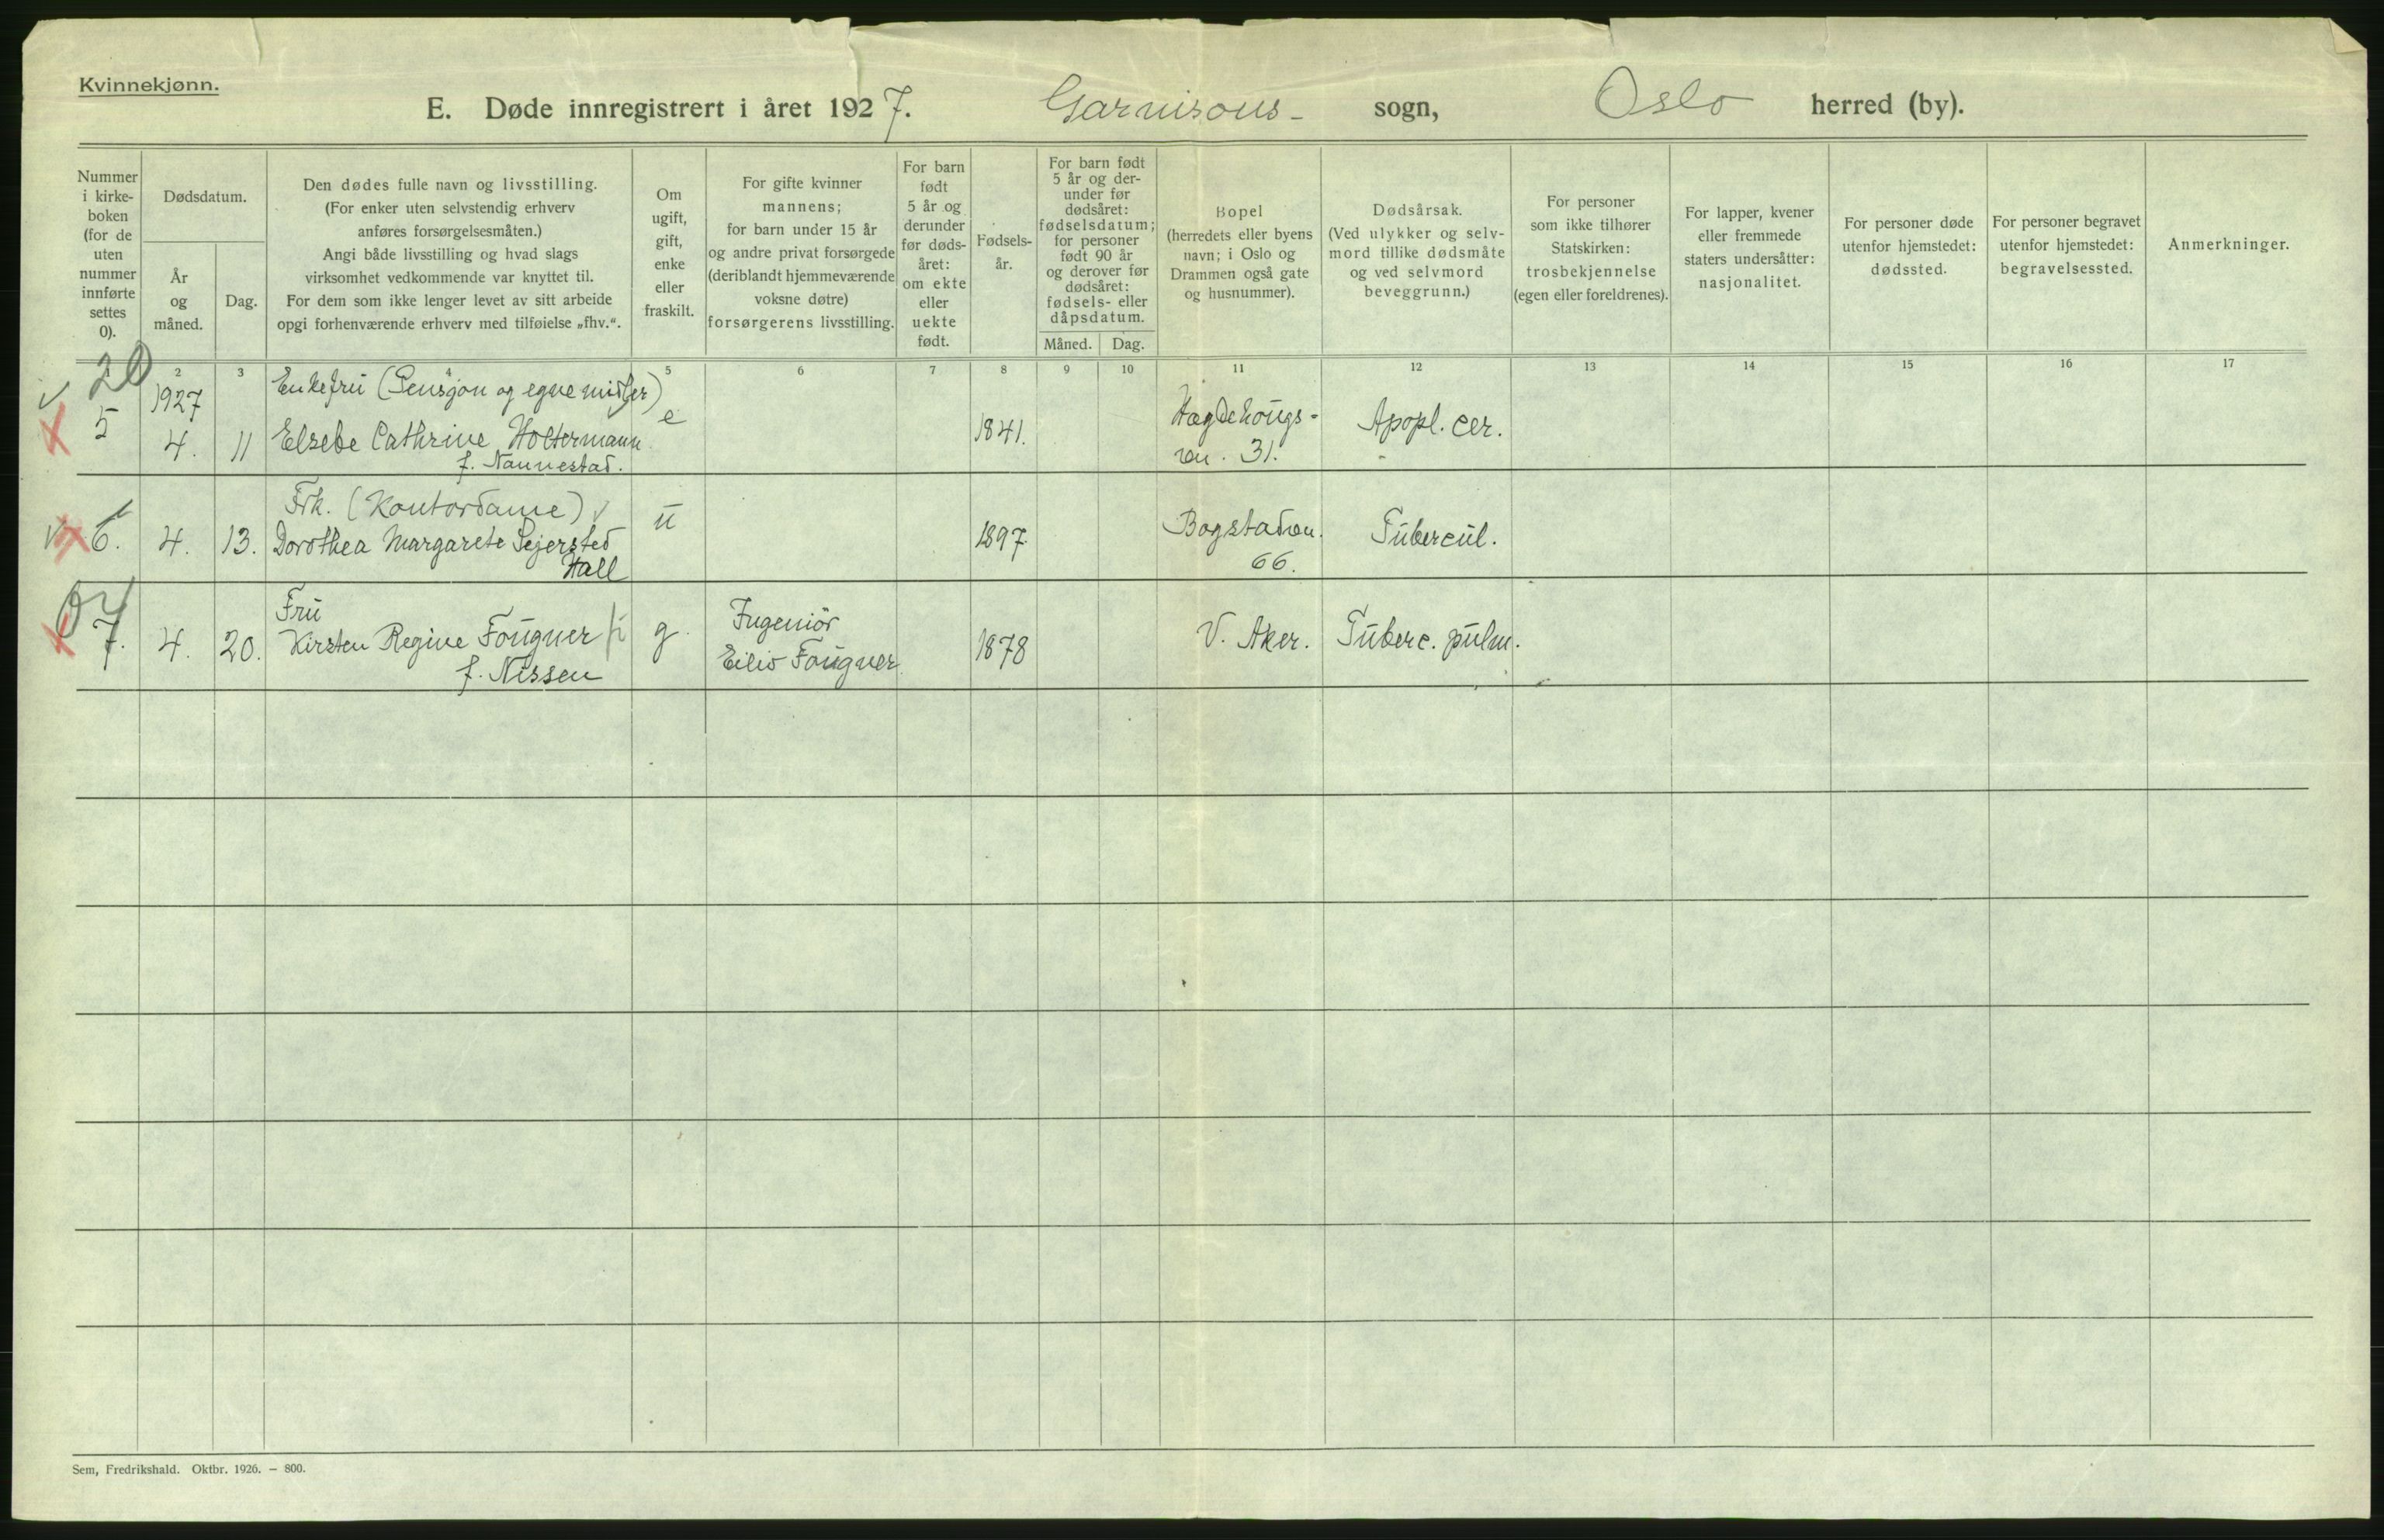 Kvinnekjønn.
E. Døde innregistrert i året 1927. Garnisons- sogn, Oslo herred (by).
Nummer i kirke-boken (for de uten nummer innførte settes 0).
Dødsdatum.
År og måned.
Dag.
Den dødes fulle navn og livsstilling.
(For enker uten selvstendig erhverv
anføres forsørgelsesmåten.)
Angi både livsstilling og hvad slags
virksomhet vedkommende var knyttet til.
For dem som ikke lenger levet av sitt arbeide
opgi forhenværende erhverv med tilføielse „fhv.“.
Om
ugift,
gift,
enke
eller
fraskilt.
For gifte kvinner
mannens;
for barn under 15 år
og andre privat forsørgede
(deriblandt hjemmeværende
voksne døtre)
forsørgerens livsstilling.
For barn
født
5 år og
derunder
før døds-
året:
om ekte
eller
uekte
født.
Fødsels-
år.
For barn født
5 år og der-
under før
dødsåret:
fødselsdatum;
for personer
født 90 år
og derover før
dødsåret:
fødsels- eller
dåpsdatum.
Måned. Dag.
Bopel
(herredets eller byens
navn; i Oslo og
Drammen også gate
og husnummer).
Dødsårsak.
(Ved ulykker og selv-
mord tillike dødsmåte
og ved selvmord
beveggrunn.)
For personer
som ikke tilhører
Statskirken:
trosbekjennelse
(egen eller foreldrenes).
For lapper, kvener
eller fremmede
staters undersåtter:
nasjonalitet.
For personer døde
utenfor hjemstedet:
dødssted.
For personer begravet
utenfor hjemstedet:
begravelsessted.
Anmerkninger.
2 3 4 5 6 7 8 9 10 11 12 13 14 15 16 17
20
1927 Enkefru (Pensjon og egne midler)
5 4. 11 Elsebe Cathrine Holtermann e 1841. Hægdehougs- Apopl. cer.
f. Nannestad. vn. 31.
Frk. (Kontordame)
6. 4. 13. Dorothea Margarete Sejersted u 1897 Bogstadvn. Tubercul.
Hall 66.
Fru Ingeniør
7. 4. 20. Kirsten Regine Fougner g. Eiliv Fougner 1878 V. Aker. Tuberc. pulm.
f. Nissen
Sem, Fredrikshald. Oktbr. 1926. – 800.